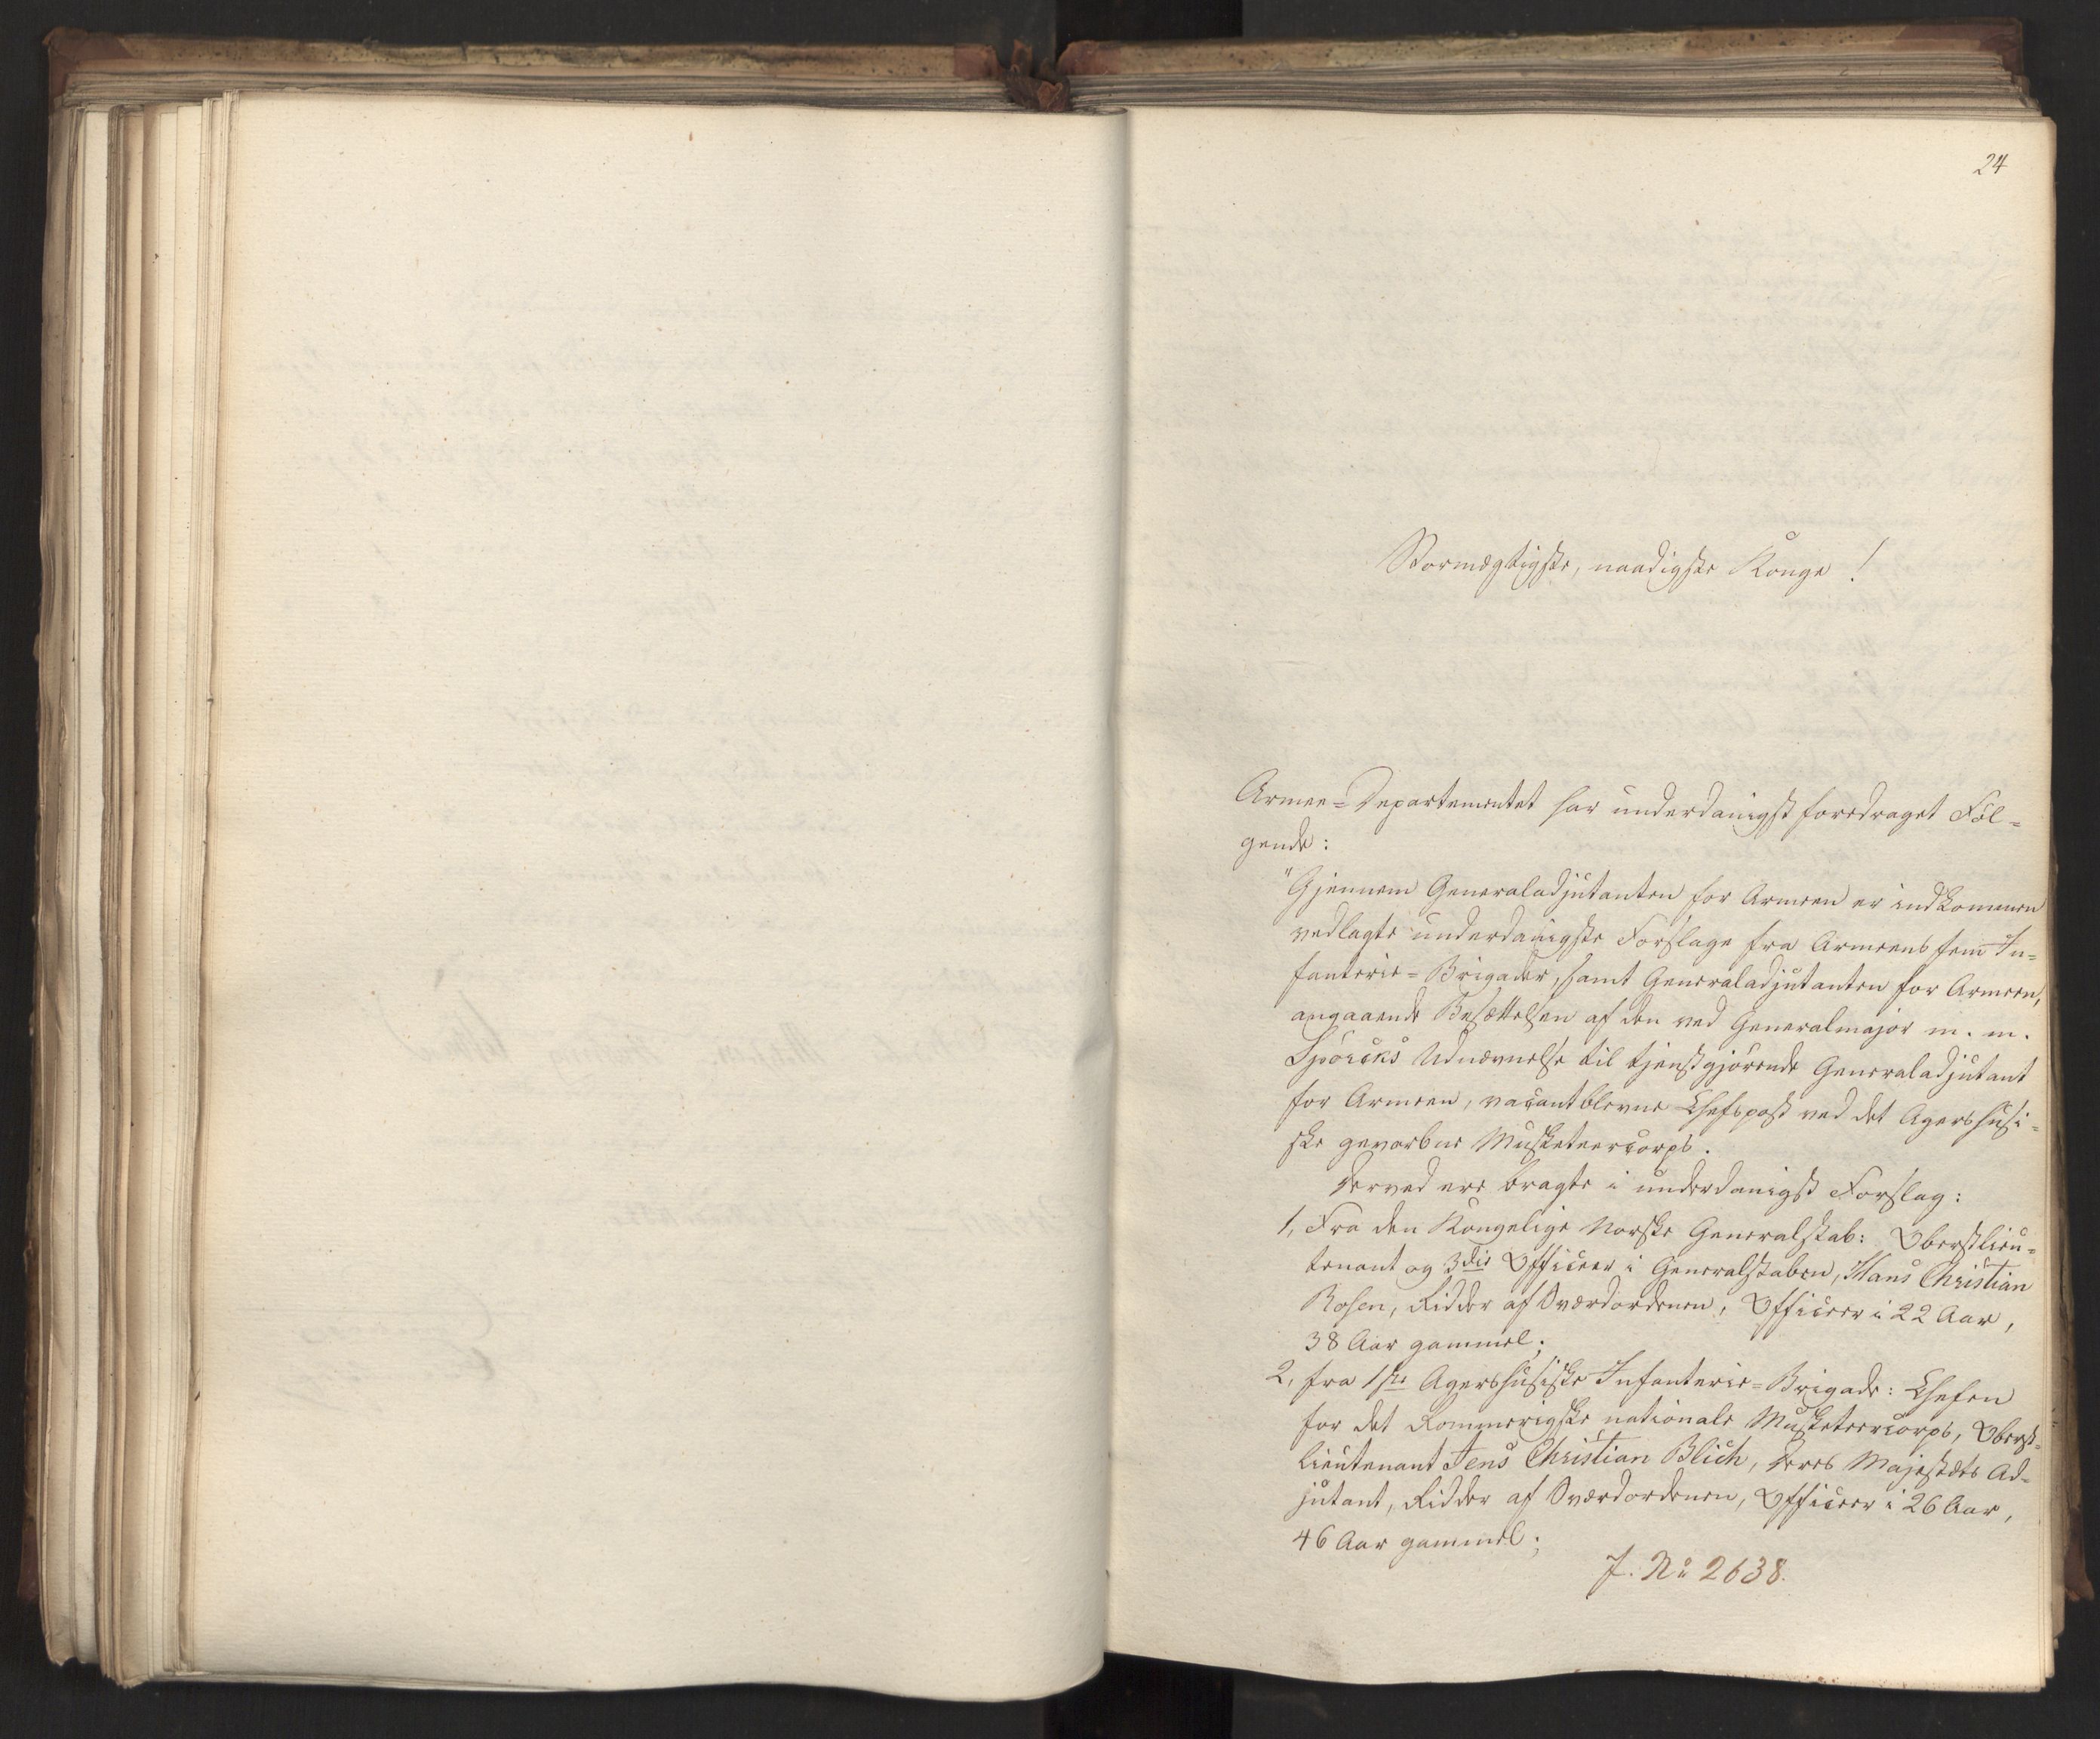 24
Stormægtigste, naadigste Konge!
Armee=Departementet har underdanigst foredraget Föl=
gende:
"Gjennem Generaladjutanten for Armeen er indkommen
vedlagte underdanigste Forslage fra Armeens fem In=
fanterie=Brigader, samt Generaladjutanten for Armeen,
angaaende Besættelsen af den ved Generalmajor m. m.
Spörcks Udnævnelse til tjenstgjörende Generaladjutant
for Armeen, vacantblevne Chefspost ved det Agershusi=
ske gevorbne Musketeercorps.
Derved ere bragte i underdanigst Forslag:
1, Fra den Kongelige Norske Generalstab: Oberstlieu=
tenant og 3die Officeer i Generalstaben, Hans Christian
Rosen, Ridder af Sværdordenen, Officeer i 22 Aar,
38 Aar gammel;
2, fra 1ste Agershusiske Infanterie=Brigade: Chefen
for det Rommerigske nationale Musketeercorps, Oberst=
lieutenant Jens Christian Blich, Deres Majestæts Ad=
jutant, Ridder af Sværdordenen, Officeer i 26 Aar,
46 Aar gammel;
J. No 2638.